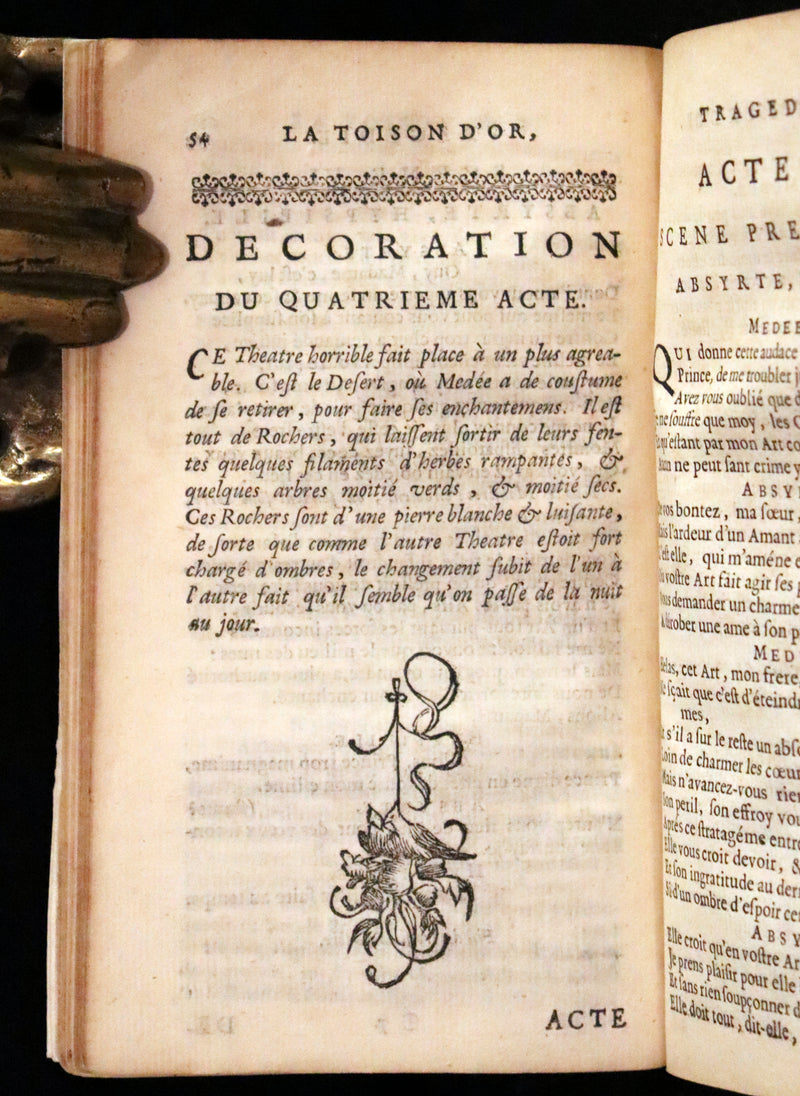 54 LA TOISON D'OR,
DECORATION
DU QUATRIEME ACTE.
CE Theatre horrible fait place à un plus agrea-
ble. C'eſt le Deſert, où Medée a de couſtume
de ſe retirer, pour faire ſes enchantemens. Il eſt
tout de Rochers, qui laiſſent ſortir de leurs fen-
tes quelques filaments d'herbes rampantes, &
quelques arbres moitié verds, & moitié ſecs.
Ces Rochers ſont d'une pierre blanche & luiſante,
de ſorte que comme l'autre Theatre eſtoit fort
chargé d'ombres, le changement ſubit de l'un à
l'autre fait qu'il ſemble qu'on paſſe de la nuit
au jour.
ACTE
TRAGED
ACTE
SCENE PRE
ABSYRTE,
MEDEE
QUI donne cette audace
Prince, de me troubler
Avez vous oublié que
ne ſouffre que moy, les
qu'eſtant par mon Art
ne peut ſans crime
ABSY
vos bontez, ma ſœur,
l'ardeur d'un Amant
elle, qui m'améne
voſtre Art fait agir ſes
demander un charme
dérober une ame à ſon
MED
Helas, cet Art, mon frere
ſçait que c'eſt d'éteindr
mes,
s'il a ſur le reſte un abſ
de charmer les cœur
Mais n'avancez-vous rien
Son peril, ſon effroy vou
Aprés ce ſtratagéme entr
Elle vous croit devoir,
Et ſon ingratitude au der
d'un ombre d'eſpoir
ABSY
Elle croit qu'en voſtre Ar
Je prens plaiſir pour elle
Et ſans rien ſoupçonner d
Elle doit tout, dit-elle,